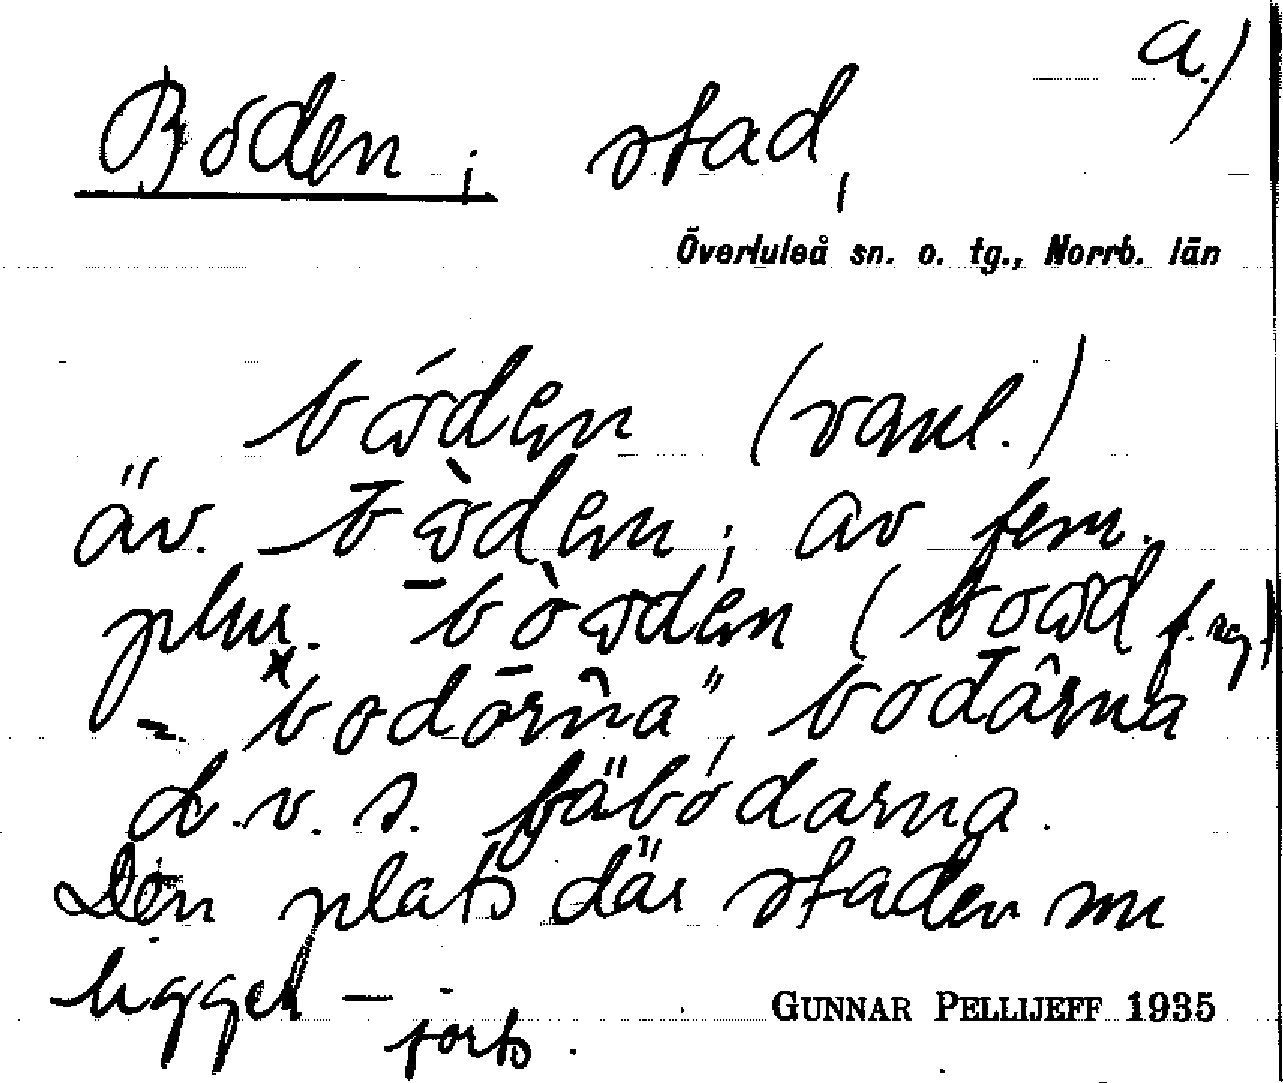 a.)
Boden, stad,
Överluleå sn. o. tg., Norrb. län
(vanl.)
äv. av fem.
plur. f. sg.)
= *bodōrna", bodârna
d.v.s. fäbodarna.
Den plats där staden nu
ligger –
forts.
GUNNAR PELLIJEFF 1935